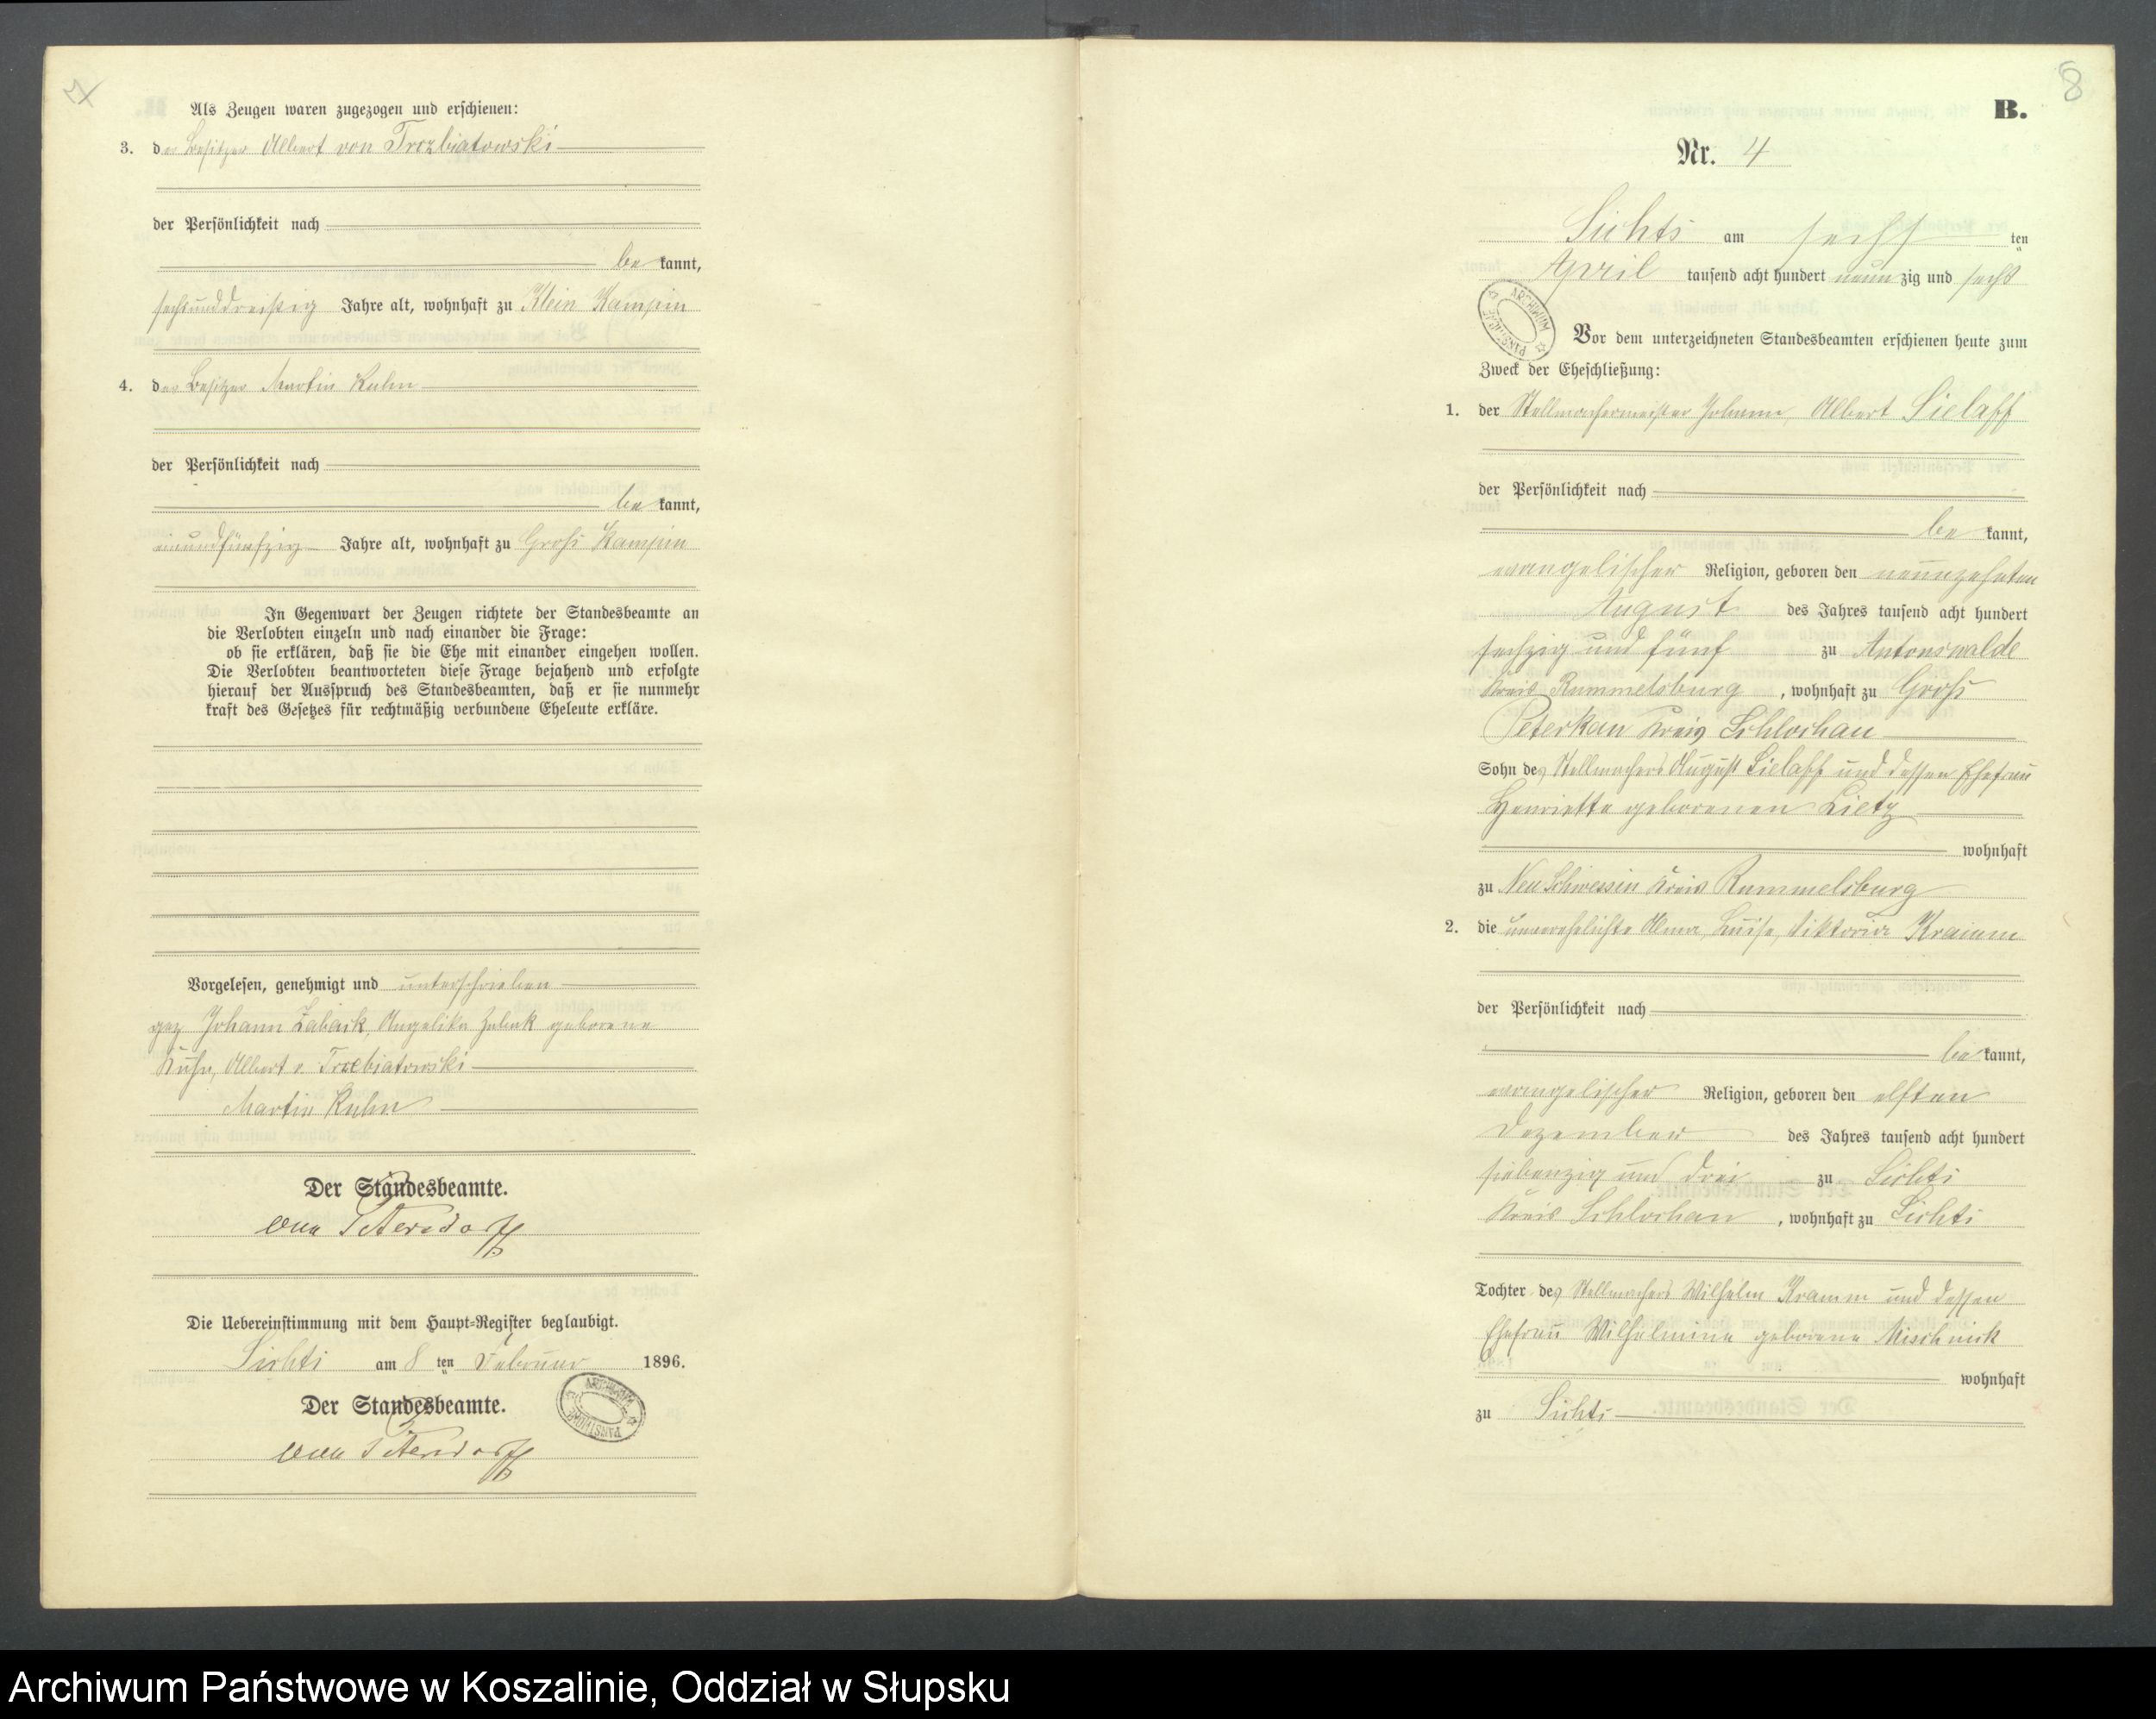 Als Zeugen waren zugezogen und erschienen:
3. der Besitzer Albert von Trzbiatowski
der Persönlichkeit nach
be kannt,
sechsunddreißig Jahre alt, wohnhaft zu Klein Kampin
4. der Besitzer Martin Kuhn
der Persönlichkeit nach
be kannt,
einundfünfzig Jahre alt, wohnhaft zu Groß Kampin
In Gegenwart der Zeugen richtete der Standesbeamte an
die Verlobten einzeln und nach einander die Frage:
ob sie erklären, daß sie die Ehe mit einander eingehen wollen.
Die Verlobten beantworteten diese Frage bejahend und erfolgte
hierauf der Ausspruch des Standesbeamten, daß er sie nunmehr
kraft des Gesetzes für rechtmäßig verbundene Eheleute erkläre.
Vorgelesen, genehmigt und unterschrieben
gez Johann Zabask, Angelika Zabak geborene
Kuhn, Albert v. Trzebiatowski
Martin Kuhn
Der Standesbeamte.
von Petersdorff
Die Uebereinstimmung mit dem Haupt-Register beglaubigt.
Lichti am 8 ten Februar 1896.
Der Standesbeamte.
von Petersdorff
ARCHIWUM PAŃSTWOWE
8
B.
Nr. 4
Lichti am sechs ten
April tausend acht hundert neun zig und sechs
ARCHIWUM PAŃSTWOWE
Vor dem unterzeichneten Standesbeamten erschienen heute zum
Zweck der Eheschließung:
1. der Stellmachermeister Johann, Albert Sielaff
der Persönlichkeit nach
be kannt,
evangelischer Religion, geboren den neunzehnten
August des Jahres tausend acht hundert
sechzig und fünf zu Antonswalde
Kreis Rummelsburg, wohnhaft zu Groß
Peterkau Kreis Schlochau
Sohn des Stellmachers August Sielaff und dessen Ehefrau
Henriette geborenen Lietz
wohnhaft
zu Neu Schwessin Kreis Rummelsburg
2. die unverehelichte Alma, Luise, Viktoria Kramm
der Persönlichkeit nach
be kannt,
evangelischer Religion, geboren den elften
Dezember des Jahres tausend acht hundert
siebenzig und drei zu Lichti
Kreis Schlochau, wohnhaft zu Lichti
Tochter des Stellmachers Wilhelm Kramm und dessen
Ehefrau Wilhelmine geborene Mischnick
wohnhaft
zu Lichti
Archiwum Państwowe w Koszalinie, Oddział w Słupsku